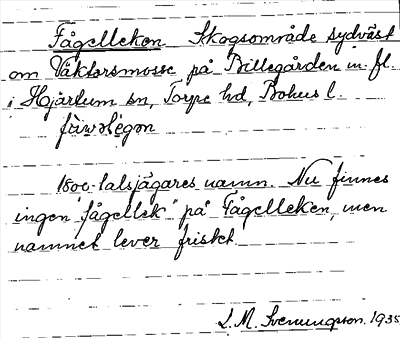 Fågelleken Skogsområde sydväst
om Väktorsmosse på Billegården m. fl.
i Hjärtum sn, Torpe hd, Bohus l.
1800-talsjägares namn. Nu finnes
ingen "fågellek" på Fågelleken, men
namnet lever friskt.
L. M. Svenungsson. 1935